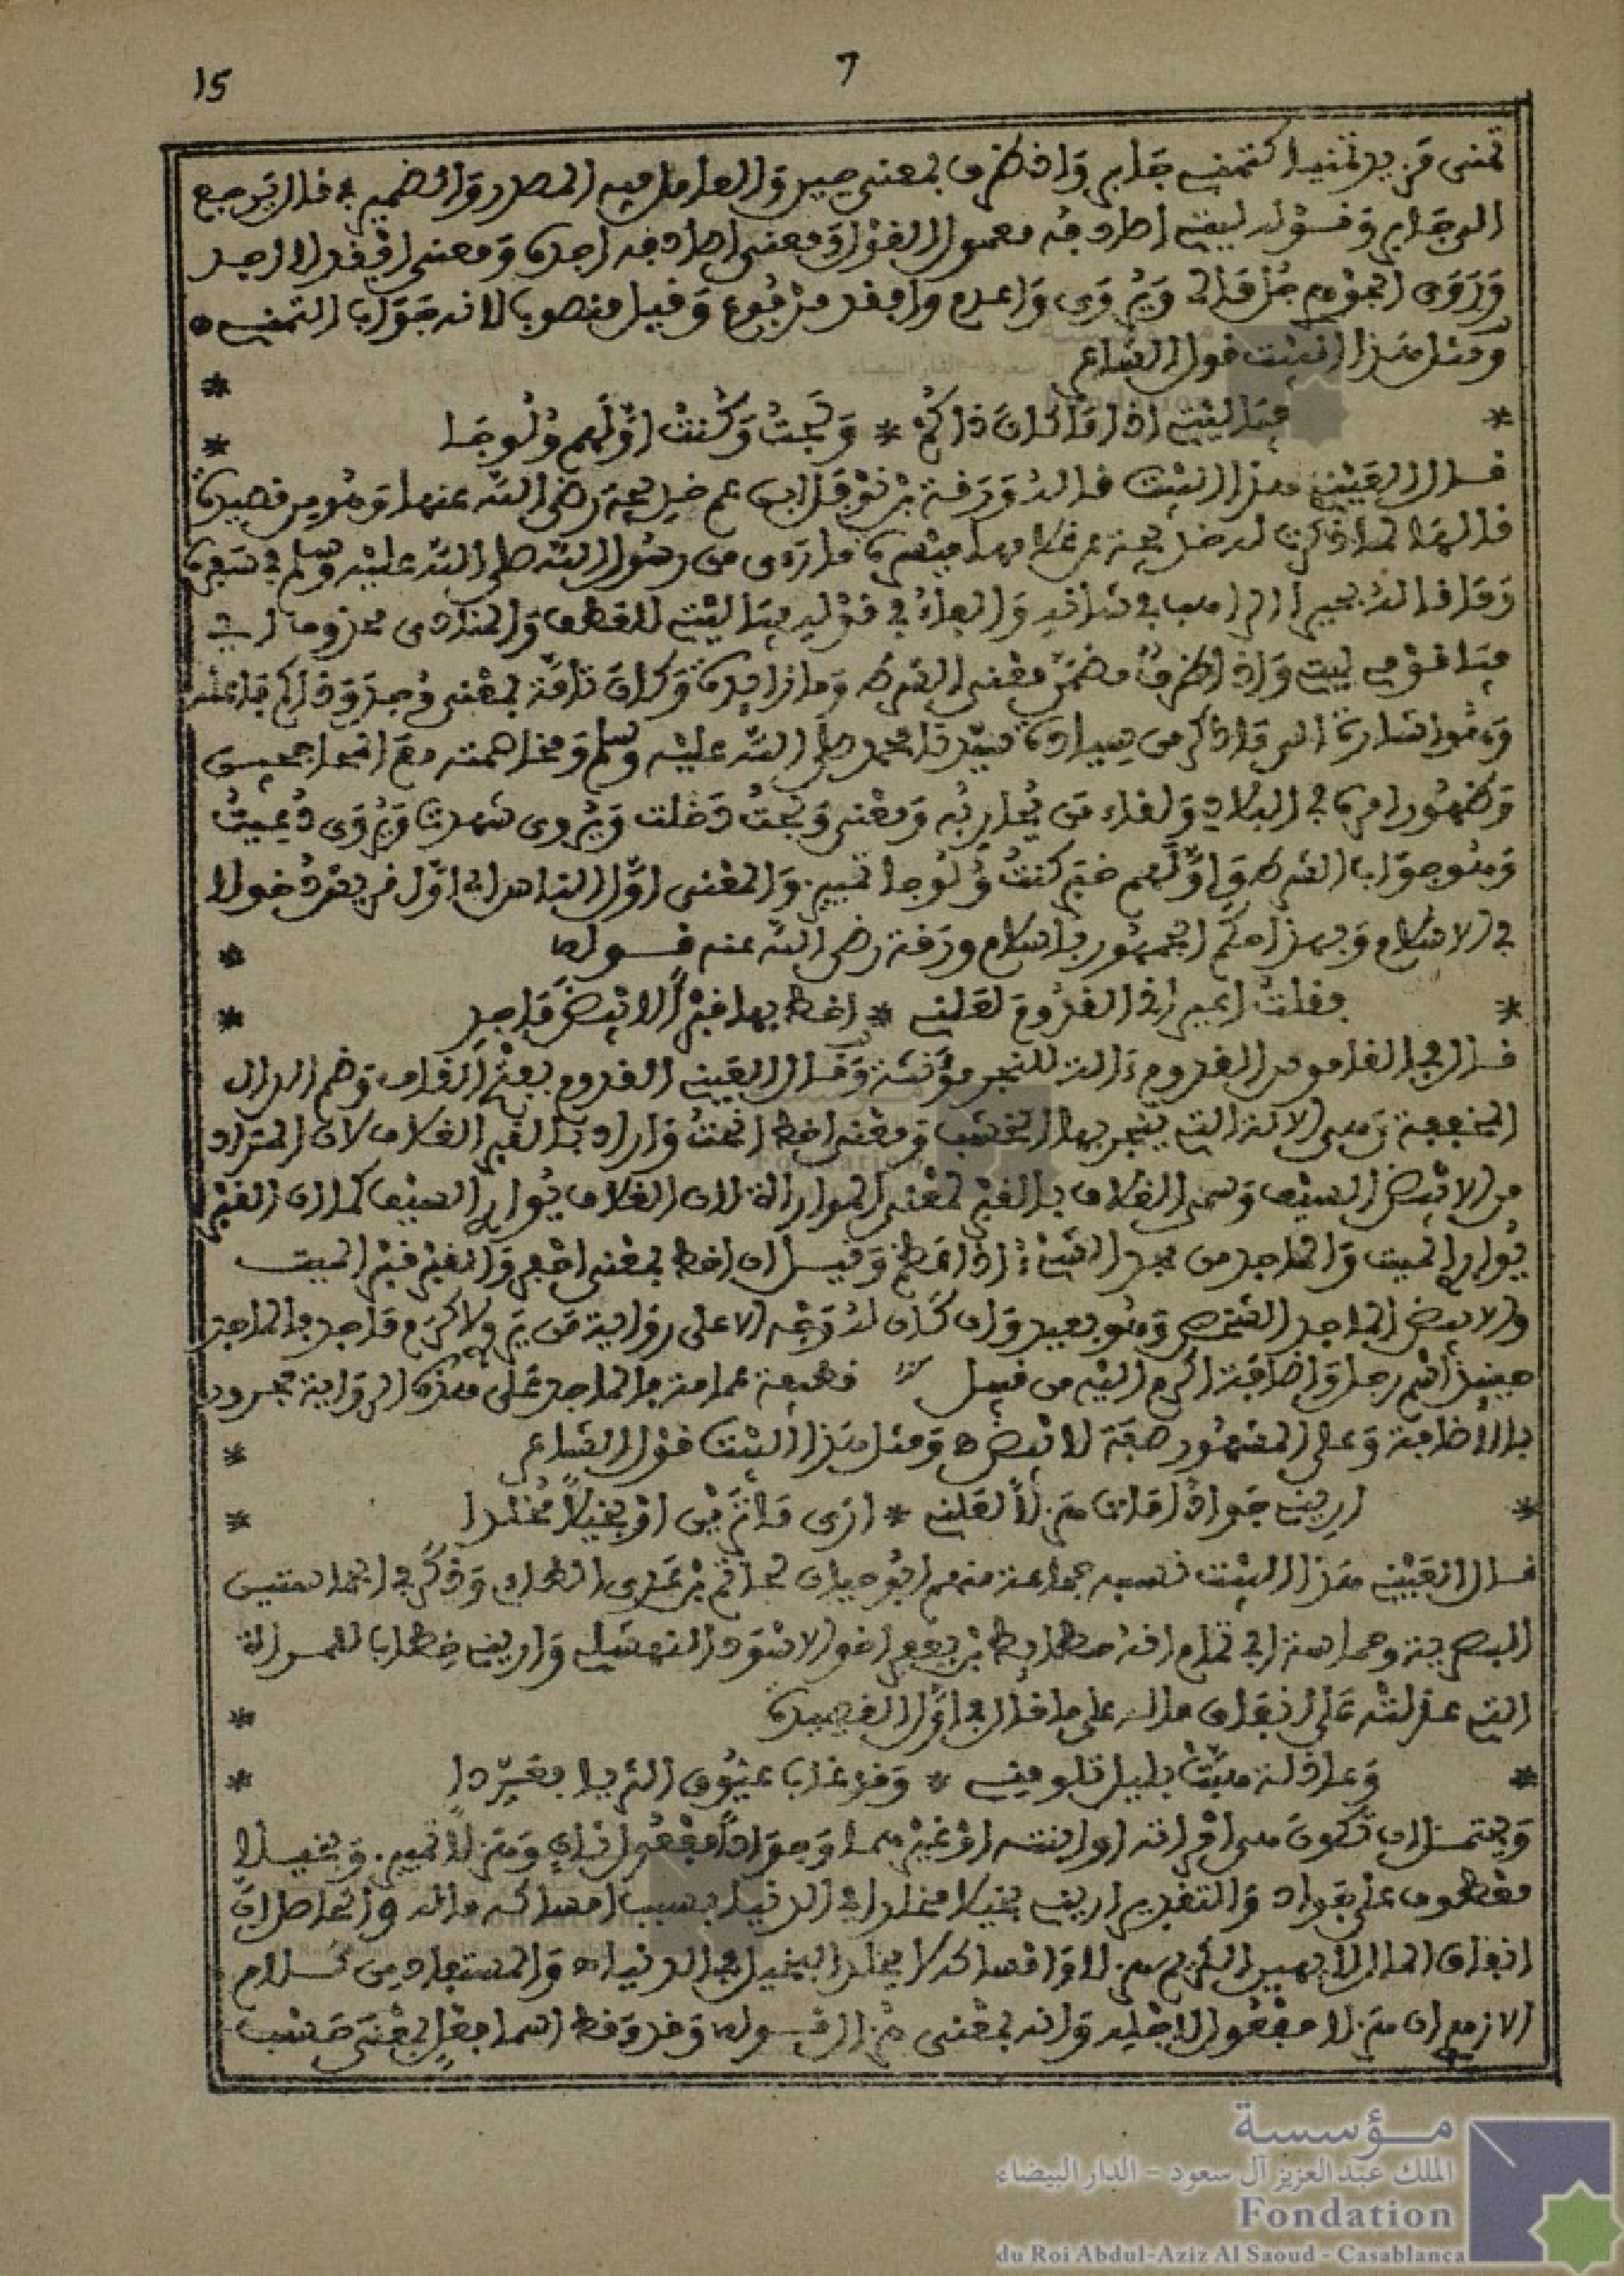 7
15
تمنى مزيد تمنيا كتمني جابر وإذ ظرف بمعنى حين والعامل فيه المصدر والضمير في قال يرجع
الى جابر وقوله ليتي اصادفه معمول القول ومعنى اصادفه اجده ومعنى افقد الا اجد
وروى الجوهري جل مالي ويروى واغرم وافقد مرفوع وقيل منصوبا لانه جواب التمني
ومثل هذا البيت قول الشاعر
* فيا ليتي اذا ما كان ذاكم * ولجت وكنت اولهم ولوجا *
قال العيني هذا البيت قاله ورقة بن نوفل ابن عم خديجة رضى الله عنها وهو من قصيدة
قالها لما ذكرت له خديجة عن غلامها ميسرة ما رءى من رسول الله صلى الله عليه وسلم في سفره
وما قاله بحيرا الراهب في شانه والفاء في قوله فيا ليتي للعطف والمنادى محذوف اي
فيا قومي ليتي واذا ظرف مضمن معنى الشرط وما زايدة وكان تامة بمعنى وجد وذاكم فاعله
وهو اشارة الى ما ذكر من سيادة سيدنا محمد صلى الله عليه وسلم ومخاصمته مع
وظهور امره في البلاد ولقاء من يحاربه ومعنى ولجت دخلت ويروى شهدت ويروى دعيت
وهو جواب الشرط واولهم خبر كنت ولوجا تمييز. والمعنى اول الناس اي اول فريق دخولا
في الاسلام وبهذا حكم الجمهور باسلام ورقة رضى الله عنه قوله
* فقلت اعيراني القدوم لعلني * اخط بها قبرا لابيض ماجد *
قال في القاموس القدوم ءالة للنجر مؤنثة وقال العيني القدوم بفتح القاف وضم الدال
المخففة وهى الالة التي ينجر بها الخشب ومعنى اخط انحت واراد بالقبر الغلاف لان المراد
من الابيض السيف وسمى الغلاف بالقبر لمعنى المواراة لان الغلاف يواري السيف كما ان القبر
يواري الميت والماجد من مجد الشيء اذا عظم وقيل ان اخط بمعنى احفر والقبر قبر الميت
والابيض الماجد الشخص وهو بعيد وان كان له وجه الا على رواية من يرو لاكرم ماجد فالماجد
حينئذ اسم رجل واضافة اكرم اليه من قبيل قطيفة عمامة فالماجد على هذه الرواية مجرور
بالاضافة وعلى المشهور صفة لابيض ومثل هذا البيت قول الشاعر
* اريني جوادا مات هزلا لعلني * ارى ما ترين او بخيلا مخلدا *
قال العيني هذا البيت نسبه جماعة منهم ابو حيان لحاتم بن عدى الطاءي وذكر في الحماستين
البصرية وحماسة ابي تمام انه حطايط بن يعفر اخو الاسود النهشلي واريني خطاب للمراة
التي عذلته على انفاق ماله على ما قال في اول القصيدة
* وعاذلة هبت بليل تلومني * وقد غاب عيوق الثريا بغردا *
ويحتمل ان تكون هى امراته او ابنته او غيرهما وجوادا مفعول ثاني وهزلا تمييز. وبخيلا
معطوف على جواد والتقدير اريني بخيلا مخلدا في الدنيا بسبب امساكه ماله والحاصل ان
انفاق المال لا يصير الكريم هزلا وامساكه لا يخلد البخيل في الدنيا والمستفاد من كلام
الازهري ان هزلا مفعول لاجله وانه بمعنى هزال قوله وقد وقط اسما فعل بمعنى حسب
مؤسسة
الملك عبد العزيز آل سعود - الدار البيضاء
Fondation
du Roi Abdul-Aziz Al Saoud - Casablanca